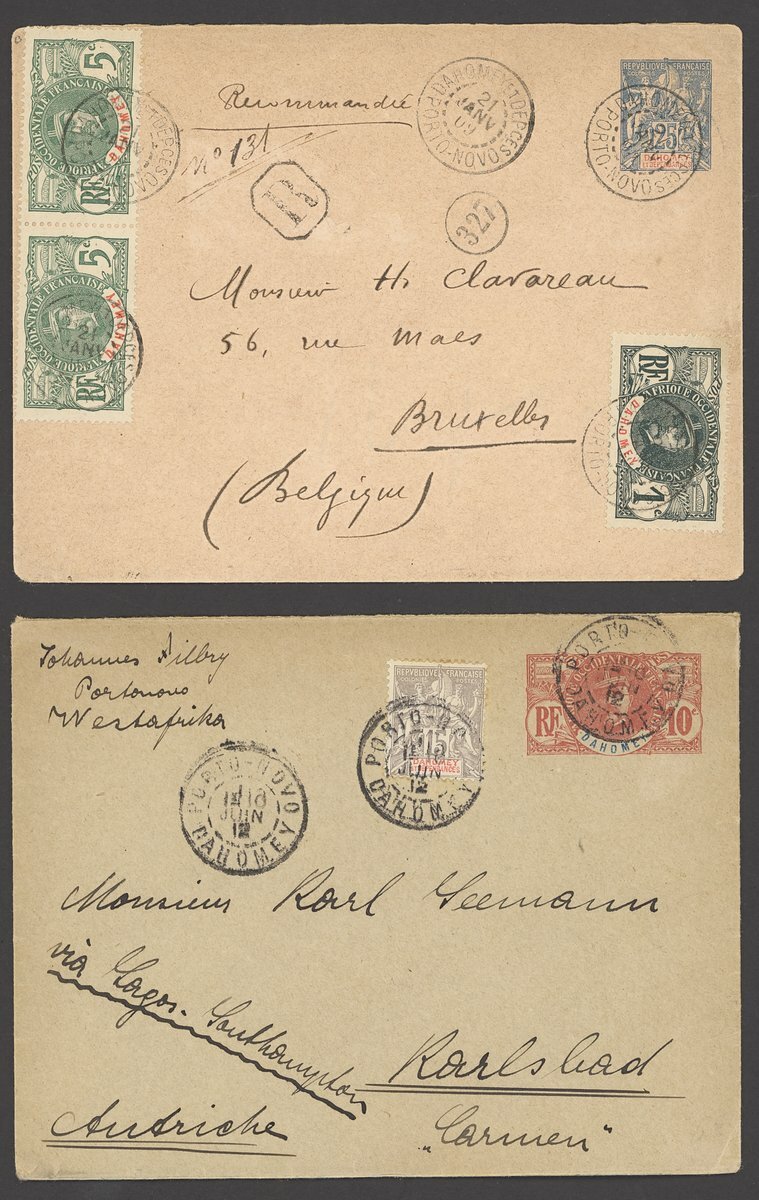 Recommandée
No 131
R
327
DAHOMEY ET DÉPces
21
JANV
09
PORTO-NOVO
REPVBLIQVE FRANÇAISE
25
DAHOMEY
ET DÉPENDANCES
5c
AFRIQUE OCCIDENTALE FRANÇAISE
DAHOMEY
RF
5c
AFRIQUE OCCIDENTALE FRANÇAISE
DAHOMEY
RF
Monsieur H. Clavareau
56, rue Maes
Bruxelles
(Belgique)
RF
AFRIQUE OCCIDENTALE FRANÇAISE
DAHOMEY
1c
Johannes
Portonovo
Westafrika
REPVBLIQVE FRANÇAISE
COLONIES POSTES
15
DAHOMEY
ET DÉPENDANCES
RF
10c
DAHOMEY
PORTO-NOVO
JUIN
12
DAHOMEY
PORTO-NOVO
JUIN
12
DAHOMEY
Monsieur Karl Seemann
via Lagos-Southampton
Karlsbad
Autriche
„Carmen"